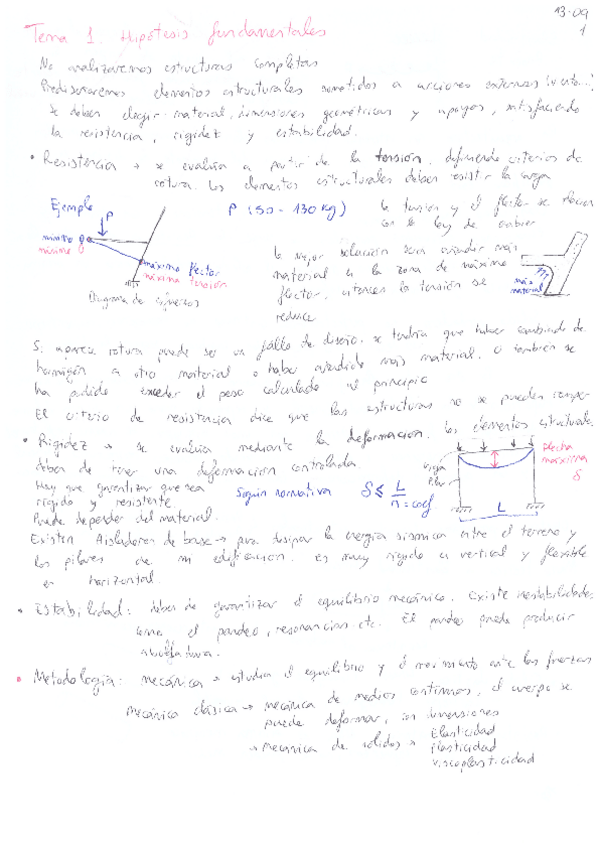 13-09
1
Tema 1. Hipótesis fundamentales
No analizaremos estructuras completas
Predisenaremos elementos estructurales sometidos a acciones externas (viento...)
Se deben elegir: material, dimensiones geométricas y apoyos, satisfaciendo
la resistencia, rigidez y estabilidad.
• Resistencia → se evalúa a partir de la tensión, definiendo criterios de
rotura. Los elementos estructurales deben resistir la carga
Ejemplo
P
P (50 - 130 kg)
la tensión y el flector se
con la ley de
mínimo
mínimo σ
máximo flector
máxima tensión
Diagrama de esfuerzos
la mejor solución sera añadir más
material en la zona de máximo
flector, entonces la tensión se
reduce
más
material
Si aparece rotura puede ser un fallo de diseño, se tendría que haber cambiado de
hormigón a otro material o haber añadido más material. O también se
ha podido exceder el peso calculado al principio
El criterio de resistencia dice que las estructuras no se pueden romper
• Rigidez → se evalúa mediante la deformación. Los elementos estructurales
deben de tener una deformación controlada
Hay que garantizar que sea
rígido y resistente
Puede depender del material.
Según normativa δ ≤ L/n = coef
Viga
Pilar
Flecha
máxima
δ
L
Existen Aisladores de base → para disipar la energía sísmica entre el terreno y
los pilares de mi edificación. es muy rígido en vertical y flexible
en horizontal.
• Estabilidad: deben de garantizar el equilibrio mecánico. Existe inestabilidades
como el pandeo, resonancias etc. El pandeo puede producir
• Metodología: mecánica → estudia el equilibrio y el movimiento ante las fuerzas
mecánica clásica → mecánica de medios continuos, el cuerpo se
puede deformar, con dimensiones
→ mecánica de sólidos → Elasticidad
Plasticidad
Viscoplasticidad